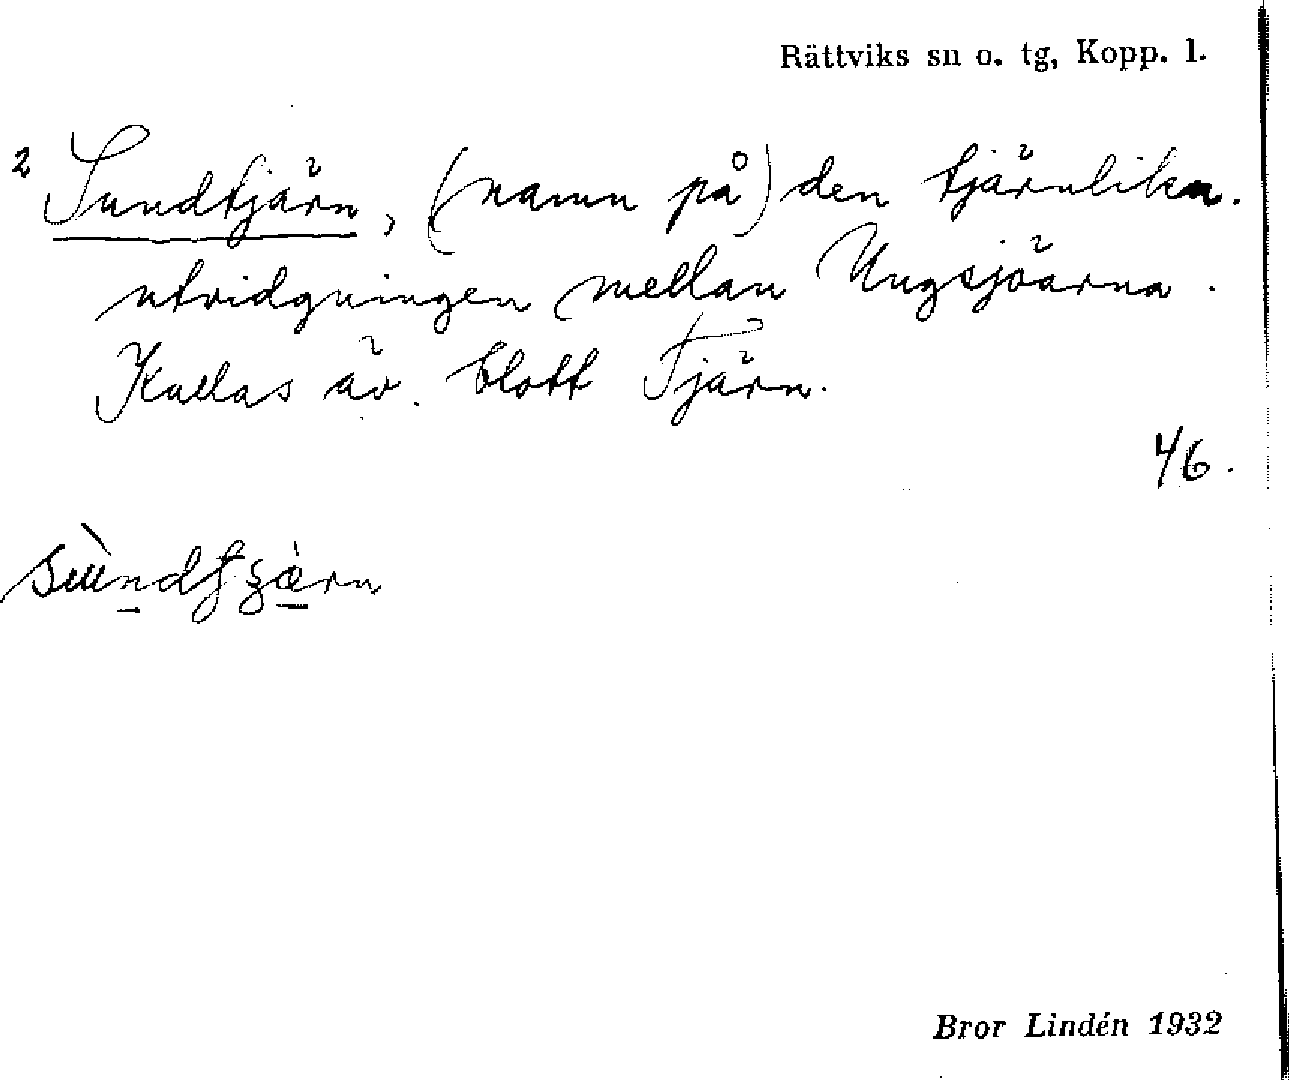 Rättviks sn o. tg, Kopp. l.
2 Sundtjärn, (namn på) den tjärnlika.
utvidgningen mellan Ungsjöarna.
Kallas äv. blott Tjärn.
46.
Bror Lindén 1932